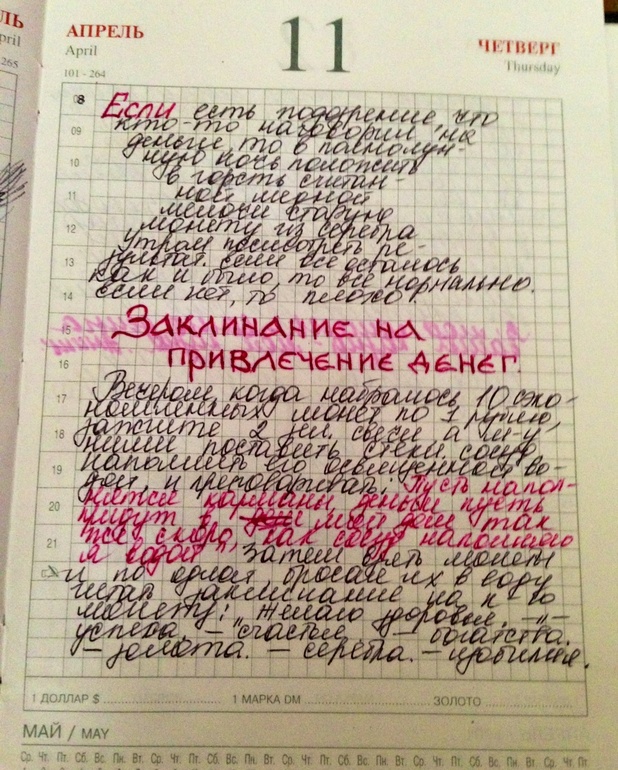 ЛЬ
pril
265
АПРЕЛЬ
April
101 - 264
11
ЧЕТВЕРГ
Thursday
08
Если есть подозрение что
09
кто-то наговорил на
деньги то в полнолун-
10
ную ночь положить
в горсть считан-
11
ной медной
мелочи старую
12
монету из серебра
утром посмотреть ре-
13
зультат. если всё осталось
как и было, то всё нормально.
14
если нет, то плохо!
15
Заклинание на
16
привлечение денег.
Вечером когда набралось 10 сэко-
17
номленных монет по 1 рублю,
зажгите 2 зел. свечи а
18
ними поставить стекл. сосуд,
19
наполнить его освященной во-
дой, и приговаривать: Пусть напол-
20
няются карманы деньги пусть
придут в мой дом так
21
же скоро, как сосуд наполняю
я водой". Затем взять монеты
и по одной бросая их в воду
читать заклинание на к-ю
монету: „Желаю здоровья, –"–
успеха, – счастье, – богатства.
– золота. – серебра. – изобилия.
1 ДОЛЛАР $ 1 МАРКА DM ЗОЛОТО
МАЙ / MAY
Ср. Чт. Пт. Сб. Вс. Пн. Вт. Ср. Чт. Пт. Сб. Вс. Пн. Вт. Ср. Чт. Пт. Сб. Вс. Пн. Вт. Ср. Чт. Пт. Сб. Вс. Пн. Вт. Ср. Чт. Пт.